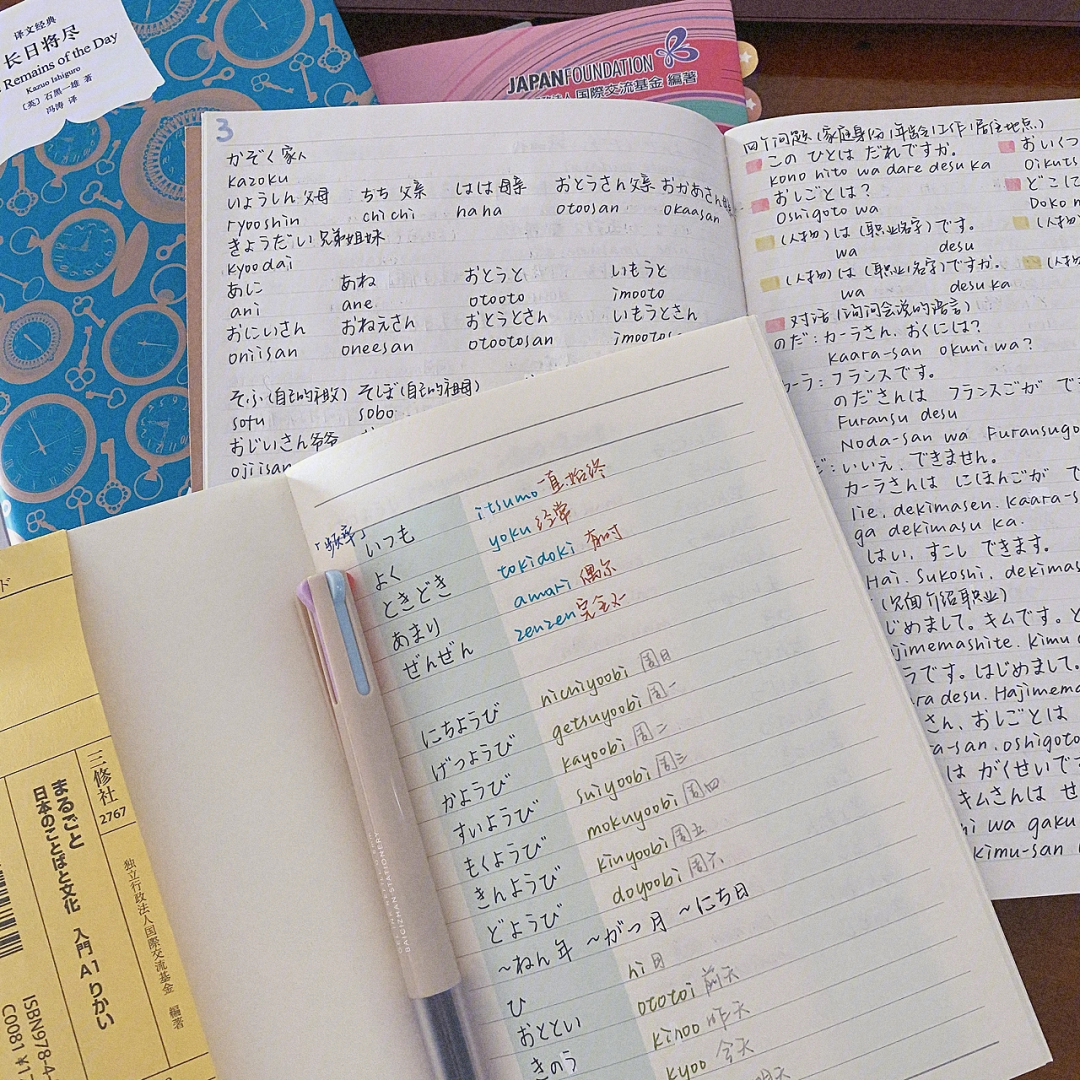 译文经典
长日将尽
Remains of the Day
Kazuo Ishiguro
〔英〕石黑一雄 著
冯涛 译
JAPANFOUNDATION
国際交流基金 編著
3
かぞく 家人
kazoku
りょうしん 父母 ちち 父亲 はは 母亲 おとうさん 父亲 おかあさん
ryooshin chichi haha otoosan okaasan
きょうだい 兄弟姐妹
kyoodai
あに あね おとうと いもうと
ani ane otooto imooto
おにいさん おねえさん おとうとさん いもうとさん
oniisan oneesan otootosan imootos
そふ(自己的祖父) そぼ(自己的祖母)
sofu sobo
おじいさん 爷爷
ojiisan
四个问题(家庭身份/年龄/工作/居住地点)
このひとは だれですか。
kono hito wa dare desu ka
おしごとは?
Oshigoto wa
(人物)は(职业名字)です。
wa desu
(人物)は(职业名字)ですか。
wa desu ka
おいくつ
Oikuts
どこに
Doko n
(人物)
(人物)
对话(询问会说的语言)
のだ:カーラさん、おくには?
kaara-san okuni wa?
カーラ:フランスです。
のださんは フランスごが で
Furansu desu
Noda-san wa Furansugo
いいえ、できません。
カーラさんは にほんごが で
Iie. dekimasen. kaara-s
ga dekimasu ka.
はい、すこし できます。
Hai. sukoshi. dekimas
(见面介绍职业)
じめまして。キムです。ど
jimemashite. Kimu d
ラです。はじめまして。
ra desu. Hajimema
さん、おしごとは
a-san. oshigoto
は がくせいです
キムさんは せ
hi wa gaku
kimu-san
「频率」
いつも itsumo 一直、始终
よく yoku 经常
ときどき tokidoki 有时
あまり amari 偶尔
ぜんぜん zenzen 完全不
にちようび nichiyoobi 周日
げつようび getsuyoobi 周一
かようび kayoobi 周二
すいようび suiyoobi 周三
もくようび mokuyoobi 周四
きんようび kinyoobi 周五
どようび doyoobi 周六
~ねん 年 ~がつ 月 ~にち 日
ひ hi 日
おととい ototoi 前天
きのう kinoo 昨天
kyoo 今天
明天
ド
三修社
2767
まるごと
日本のことばと文化 入門 A1 りかい
独立行政法人国際交流基金 編著
ISBN978-4-
C0081